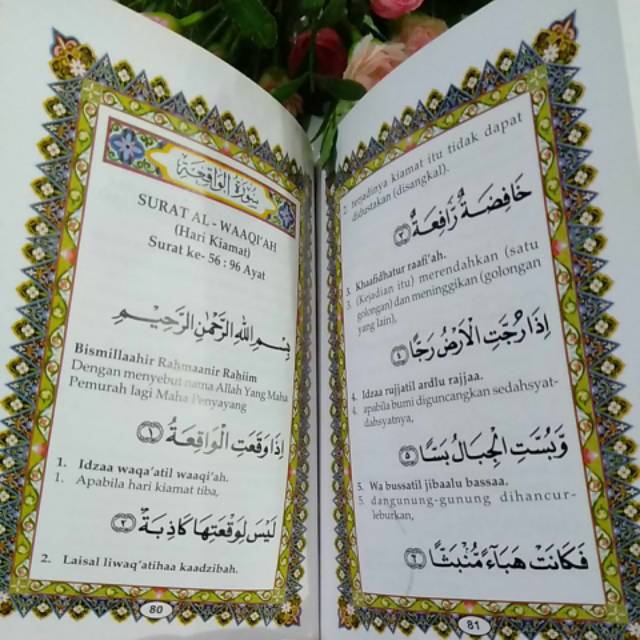 سورة الواقعة
SURAT AL - WAAQI'AH
(Hari Kiamat)
Surat ke- 56 : 96 Ayat
بِسْمِ اللهِ الرَّحْمٰنِ الرَّحِيْمِ
Bismillaahir Rahmaanir Rahiim
Dengan menyebut nama Allah Yang Maha
Pemurah lagi Maha Penyayang
اِذَا وَقَعَتِ الْوَاقِعَةُ ۝١
1. Idzaa waqa'atil waaqi'ah.
1. Apabila hari kiamat tiba,
لَيْسَ لِوَقْعَتِهَا كَاذِبَةٌ ۝٢
2. Laisal liwaq'atihaa kaadzibah.
80
2. terjadinya kiamat itu tidak dapat
didustakan (disangkal).
خَافِضَةٌ رَّافِعَةٌ ۝٣
3. Khaafidhatur raafi'ah.
3. (Kejadian itu) merendahkan (satu
golongan) dan meninggikan (golongan
yang lain),
اِذَا رُجَّتِ الْاَرْضُ رَجًّا ۝٤
4. Idzaa rujjatil ardlu rajjaa.
4. apabila bumi diguncangkan sedahsyat-
dahsyatnya,
وَبُسَّتِ الْجِبَالُ بَسًّا ۝٥
5. Wa bussatil jibaalu bassaa.
5. dangunung-gunung dihancur-
leburkan,
فَكَانَتْ هَبَاءً مُنْبَثًّا ۝٦
81